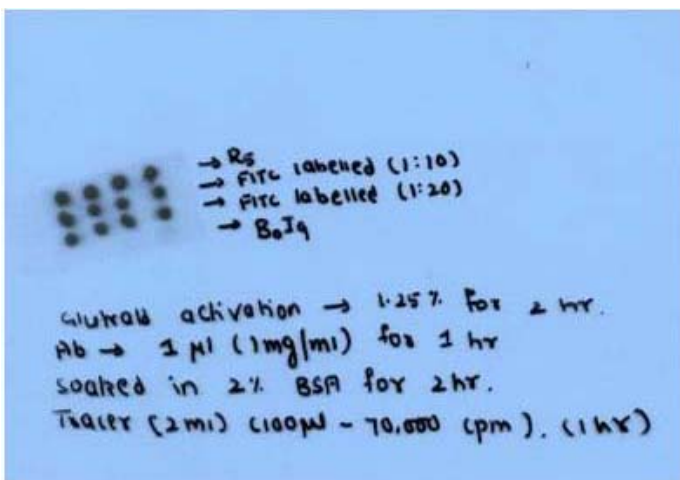 → R5
→ FITC labelled (1:10)
→ FITC labelled (1:20)
→ BoIg
Glutrald activation → 1.25% for 2 hr.
Ab → 1 µl (1mg/ml) for 1 hr
soaked in 2% BSA for 2hr.
Tracer (2ml) (100µl - 70,000 cpm). (1hr)